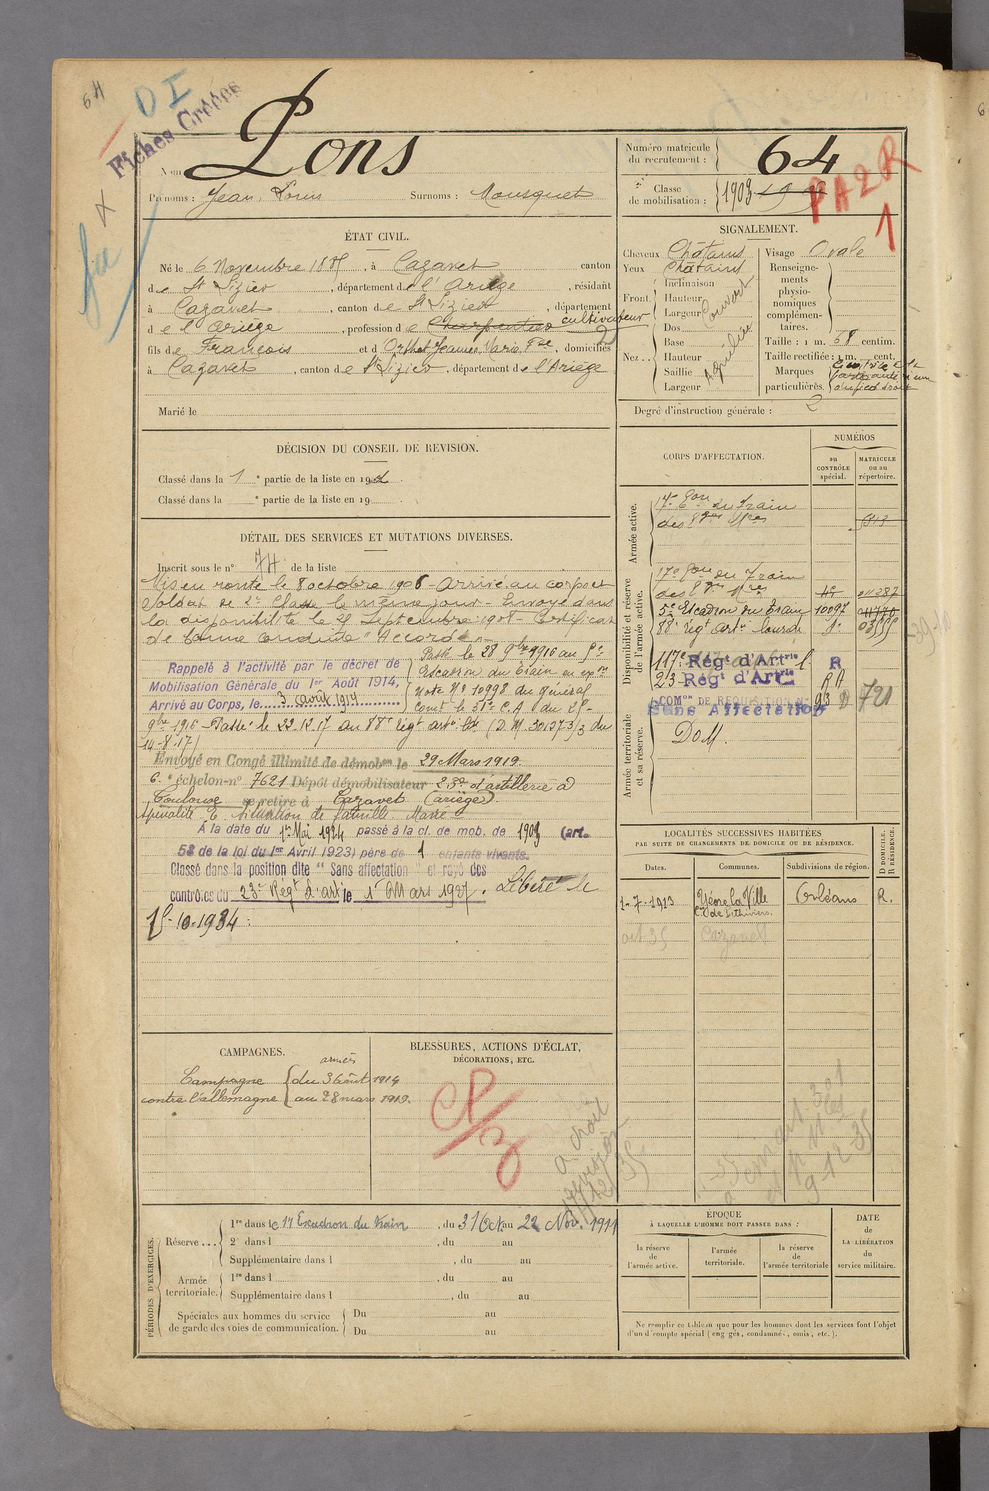 6H
DI
Fiches Créées
Nom Pons
Prénoms : Jean, Louis Surnoms : Mousquet
Numéro matricule du recrutement : 64
Classe de mobilisation : 1903
PA2R
1
ÉTAT CIVIL.
Né le 6 Novembre 188 , à Cazavet canton
de St Lizier , département de l'Ariège , résidant
à Cazavet , canton de St Lizier , département
de l'Ariège , profession de Charpentier cultivateur
fils de François et d'Orthet Jeanne, Marie , domiciliés
à Cazavet , canton de St Lizier , département de l'Ariège
Marié le
SIGNALEMENT.
Cheveux Châtains
Yeux Châtains
Front
Inclinaison
Hauteur
Largeur
Nez
Dos
Base
Hauteur
Saillie
Largeur
Visage Ovale
Renseignements physionomiques complémentaires.
Taille : 1 m. 68 centim.
Taille rectifiée : 1 m. cent.
Marques particulières.
Degré d'instruction générale : 2
DÉCISION DU CONSEIL DE REVISION.
Classé dans la 1 e partie de la liste en 190
Classé dans la e partie de la liste en 19
DÉTAIL DES SERVICES ET MUTATIONS DIVERSES.
Inscrit sous le n° 74 de la liste
Mis en route le 8 octobre 1906 - Arrivé au corps et
Soldat de 2e Classe le même jour - Envoyé dans
la disponibilité le 25 Septembre 1908 - Certificat
de bonne conduite "Accordé"
Rappelé à l'activité par le décret de
Mobilisation Générale du 1er Août 1914,
Arrivé au Corps, le 3 août 1914
Passé le 28 9bre 1916 au 5e
Escadron du Train en exon
Note N° 10998 du Général
Comt le 31e C.A. du 25
9bre 1916 - Passé le 22.12.17 au 88e Régt artie lde (D.M. 30127 3/3 du
14-8-17)
Envoyé en Congé illimité de démobon le 29 Mars 1919.
6e échelon-n° 7621 Dépôt démobilisateur 23e d'artillerie à
Toulouse se retire à Cazavet (Ariège)
Situation de famille. Marié
A la date du 1er Mai 1924 passé à la cl. de mob. de 1903 (art.
58 de la loi du 1er Avril 1923) père de 1 enfants vivants.
Classé dans la position dite "Sans affectation" et rayé des
contrôles du 23e Régt d'artie le 1er Mars 1927. Libéré le
15-10-1934
CORPS D'AFFECTATION.
NUMÉROS
au CONTRÔLE spécial.
MATRICULE ou au répertoire.
Armée active.
17e Eson du Train
des Eges Mres
Disponibilité et réserve de l'armée active.
17e Eson du Train
des Eges Mres
5e Escadron du Train 10097
88e régt Artie lourde
117e Régt d'Artrie R
23 Régt d'Artie RA
COMon DE REQUISITION N° 93 721
Sans Affectation
Armée territoriale et sa réserve.
DoM.
LOCALITÉS SUCCESSIVES HABITÉES
PAR SUITE DE CHANGEMENTS DE DOMICILE OU DE RÉSIDENCE.
Dates. Communes. Subdivisions de région. D DOMICILE. R RÉSIDENCE.
1-7-1913 Yèvre la Ville Orléans R.
Con de Pithiviers
35 Cazavet
CAMPAGNES.
Campagne contre l'allemagne
armées
du 3 août 1914
au 28 mars 1919.
BLESSURES, ACTIONS D'ÉCLAT,
DÉCORATIONS, ETC.
a droit
9-12-35
PÉRIODES D'EXERCICES.
Réserve
1re dans le 17 Escadron du train , du 31 Oct au 22 Nov. 1911
2e dans l , du au
Supplémentaire dans l , du au
Armée territoriale.
1re dans l , du au
Supplémentaire dans l , du au
Spéciales aux hommes du service de garde des voies de communication.
Du au
Du au
ÉPOQUE
À LAQUELLE L'HOMME DOIT PASSER DANS :
la réserve de l'armée active.
l'armée territoriale.
la réserve de l'armée territoriale
DATE de LA LIBÉRATION du service militaire.
Ne remplir ce tableau que pour les hommes dont les services font l'objet
d'un décompte spécial (engagés, condamnés, omis, etc.).